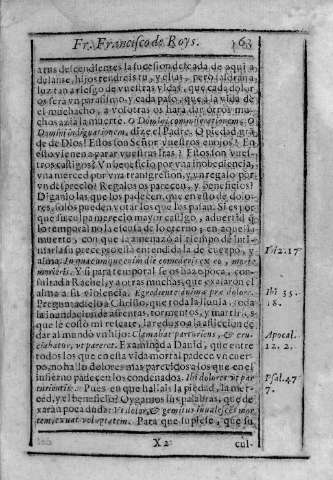 Fr. Francisco de Roys. 163
a tus descendientes la sucesion deseada de aqui a-
delante, hijos tendreis tu, y ellas, pero saldràn a
luz tan a riesgo de vuestras vidas, que cada dolor
os serà vn parasismo, y cada passo, que a la vida dè
el muchacho, a vosotras os harà dar otros mu-
chos azia la muerte. O Domini commiserationem, O
Domini indignationem, dize el Padre. O piedad grã
de de Dios! Estos son Señor vuestros enojos? En
esto vienen a parar vuestras iras? Estos son vues-
tros castigos? Vn beneficio por vna inobediencia,
vna merced por vna transgression, y vn regalo por
vn desprecio? Regalos os parecen, y beneficios?
Diganlo las que los padecen, que en esto de dolo-
res, solos pueden votar los que los passan. Si es por
que su culpa merecio mayor castigo, advertid q̃
lo temporal no la escusa de lo eterno; en aquella
muerte, con que la amenazò al tiempo de inti-
marla su precepto està entendida la de cuerpo, y
alma. In quacumque enim die comederis ex eo, morte
morieris. Y si para temporal se os haze poca, con-
sultad a Rachel, y a otras muchas, que exalaron el
alma a su violencia. Egrediente anima præ dolore.
Preguntadselo a Christo, que toda la lluvia, toda
la inundacion de afrentas, tormentos, y martirios,
que le costò mi rescate, la reduxo a la afliccion de
dar al mundo vn hijo: Clamabat parturiens, & cru-
ciabatur, vt pareret. Examinad a Dauid, que entre
todos los que en esta vida mortal padece vn cuer-
po, no hallo dolores mas parecidos a los que en el
infierno padecen los condenados. Ibi dolores vt par
turientis. Pues en que hallais la piedad, la mer-
ced, y el beneficio? Oygamos sus palabras, que de
xaràn poca duda: Vt dolor, & gemitus
tem, voluptatem. Para que supiesse, que su
X 2 cul-
Ibi 2. 17
Ibi 35.
18.
Apocal.
12. 2.
Psal. 47
7.